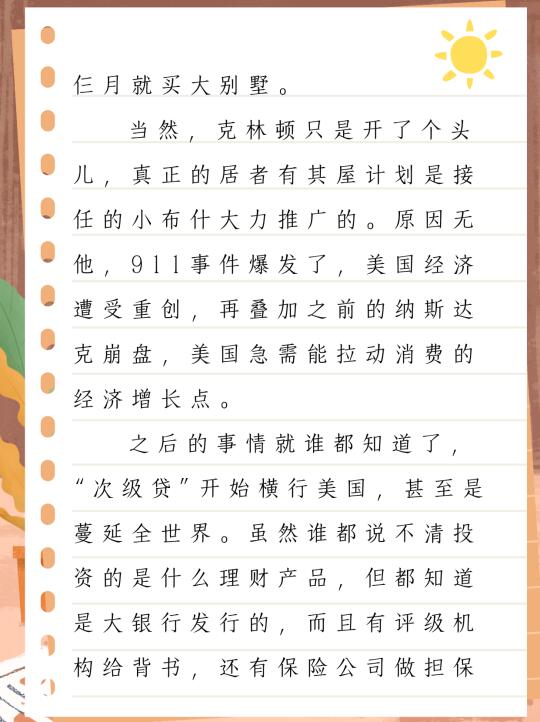 仨月就买大别墅。
当然，克林顿只是开了个头
儿，真正的居者有其屋计划是接
任的小布什大力推广的。原因无
他，911事件爆发了，美国经济
遭受重创，再叠加之前的纳斯达
克崩盘，美国急需能拉动消费的
经济增长点。
之后的事情就谁都知道了，
“次级贷”开始横行美国，甚至是
蔓延全世界。虽然谁都说不清投
资的是什么理财产品，但都知道
是大银行发行的，而且有评级机
构给背书，还有保险公司做担保